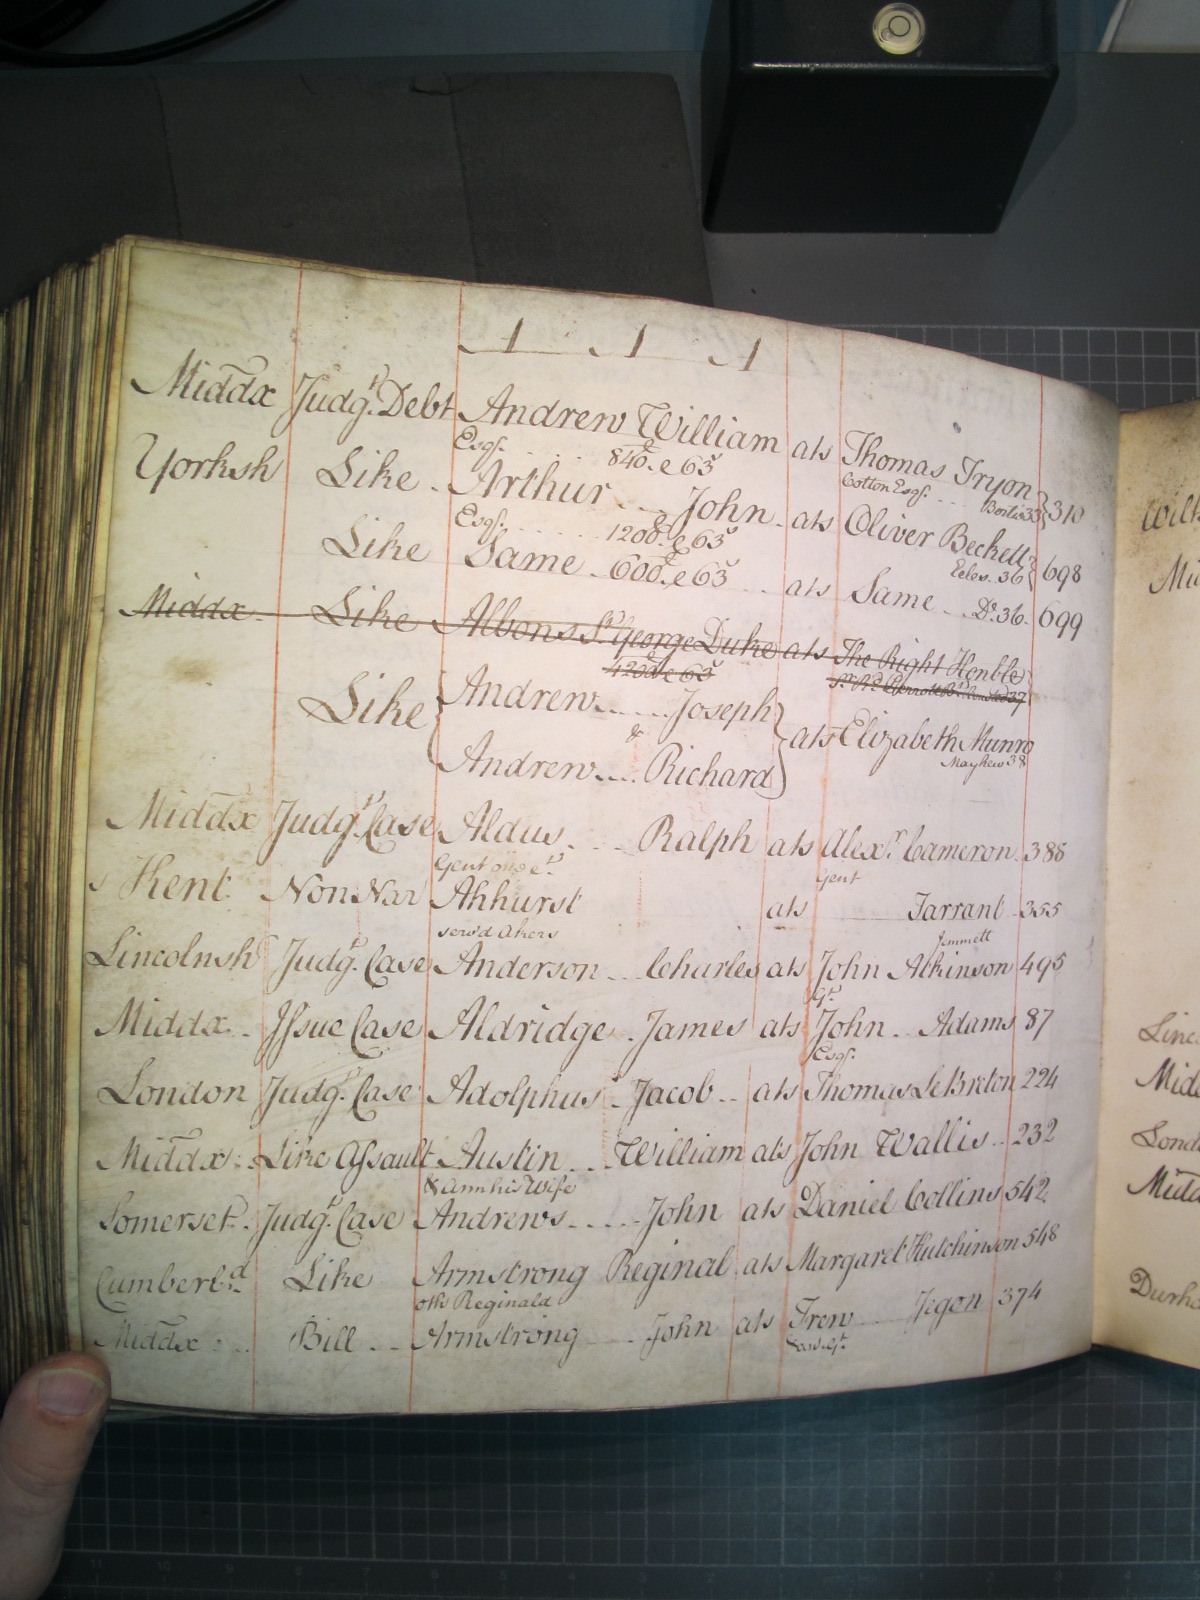 A A A
Middx Judgt. Debt Andrew William ats Thomas Tryon
Esqr. 840. & 63s Cotton Esqr. 33 310
Yorksh Like Arthur John ats Oliver Beckett
Esqr. 1200 & 63s 36 698
Like Same 600 & 63s ats Same Do. 36 699
Middx Like Albons St. George Duke ats The Right Honble
4200 & 63s 37
Like Andrew Joseph
& ats Elizabeth Munro
Andrew Richard Mayhew 38
Middx Judgt. Case Aldus Ralph ats Alexr. Cameron 388
Gent one &c. Gent
s Kent Non Nar Ahhurst ats Tarrant 355
serv'd Akers Jemmett
Lincolnsh Judgt. Case Anderson Charles ats John Atkinson 495
Gt.
Middx Issue Case Aldridge James ats John Adams 87
Esqr.
London Judgt. Case Adolphus Jacob ats Thomas Le Breton 224
Middx Like Assault Austin William ats John Wallis 232
& Ann his Wife
Somerset Judgt. Case Andrews John ats Daniel Collins 542
Cumberld. Like Armstrong Reginal ats Margaret Hutchinson 548
oth Reginald
Middx Bill Armstrong John ats Trew Jegon 374
Wilt
Linc
Midd
Lond
Midd
Durh